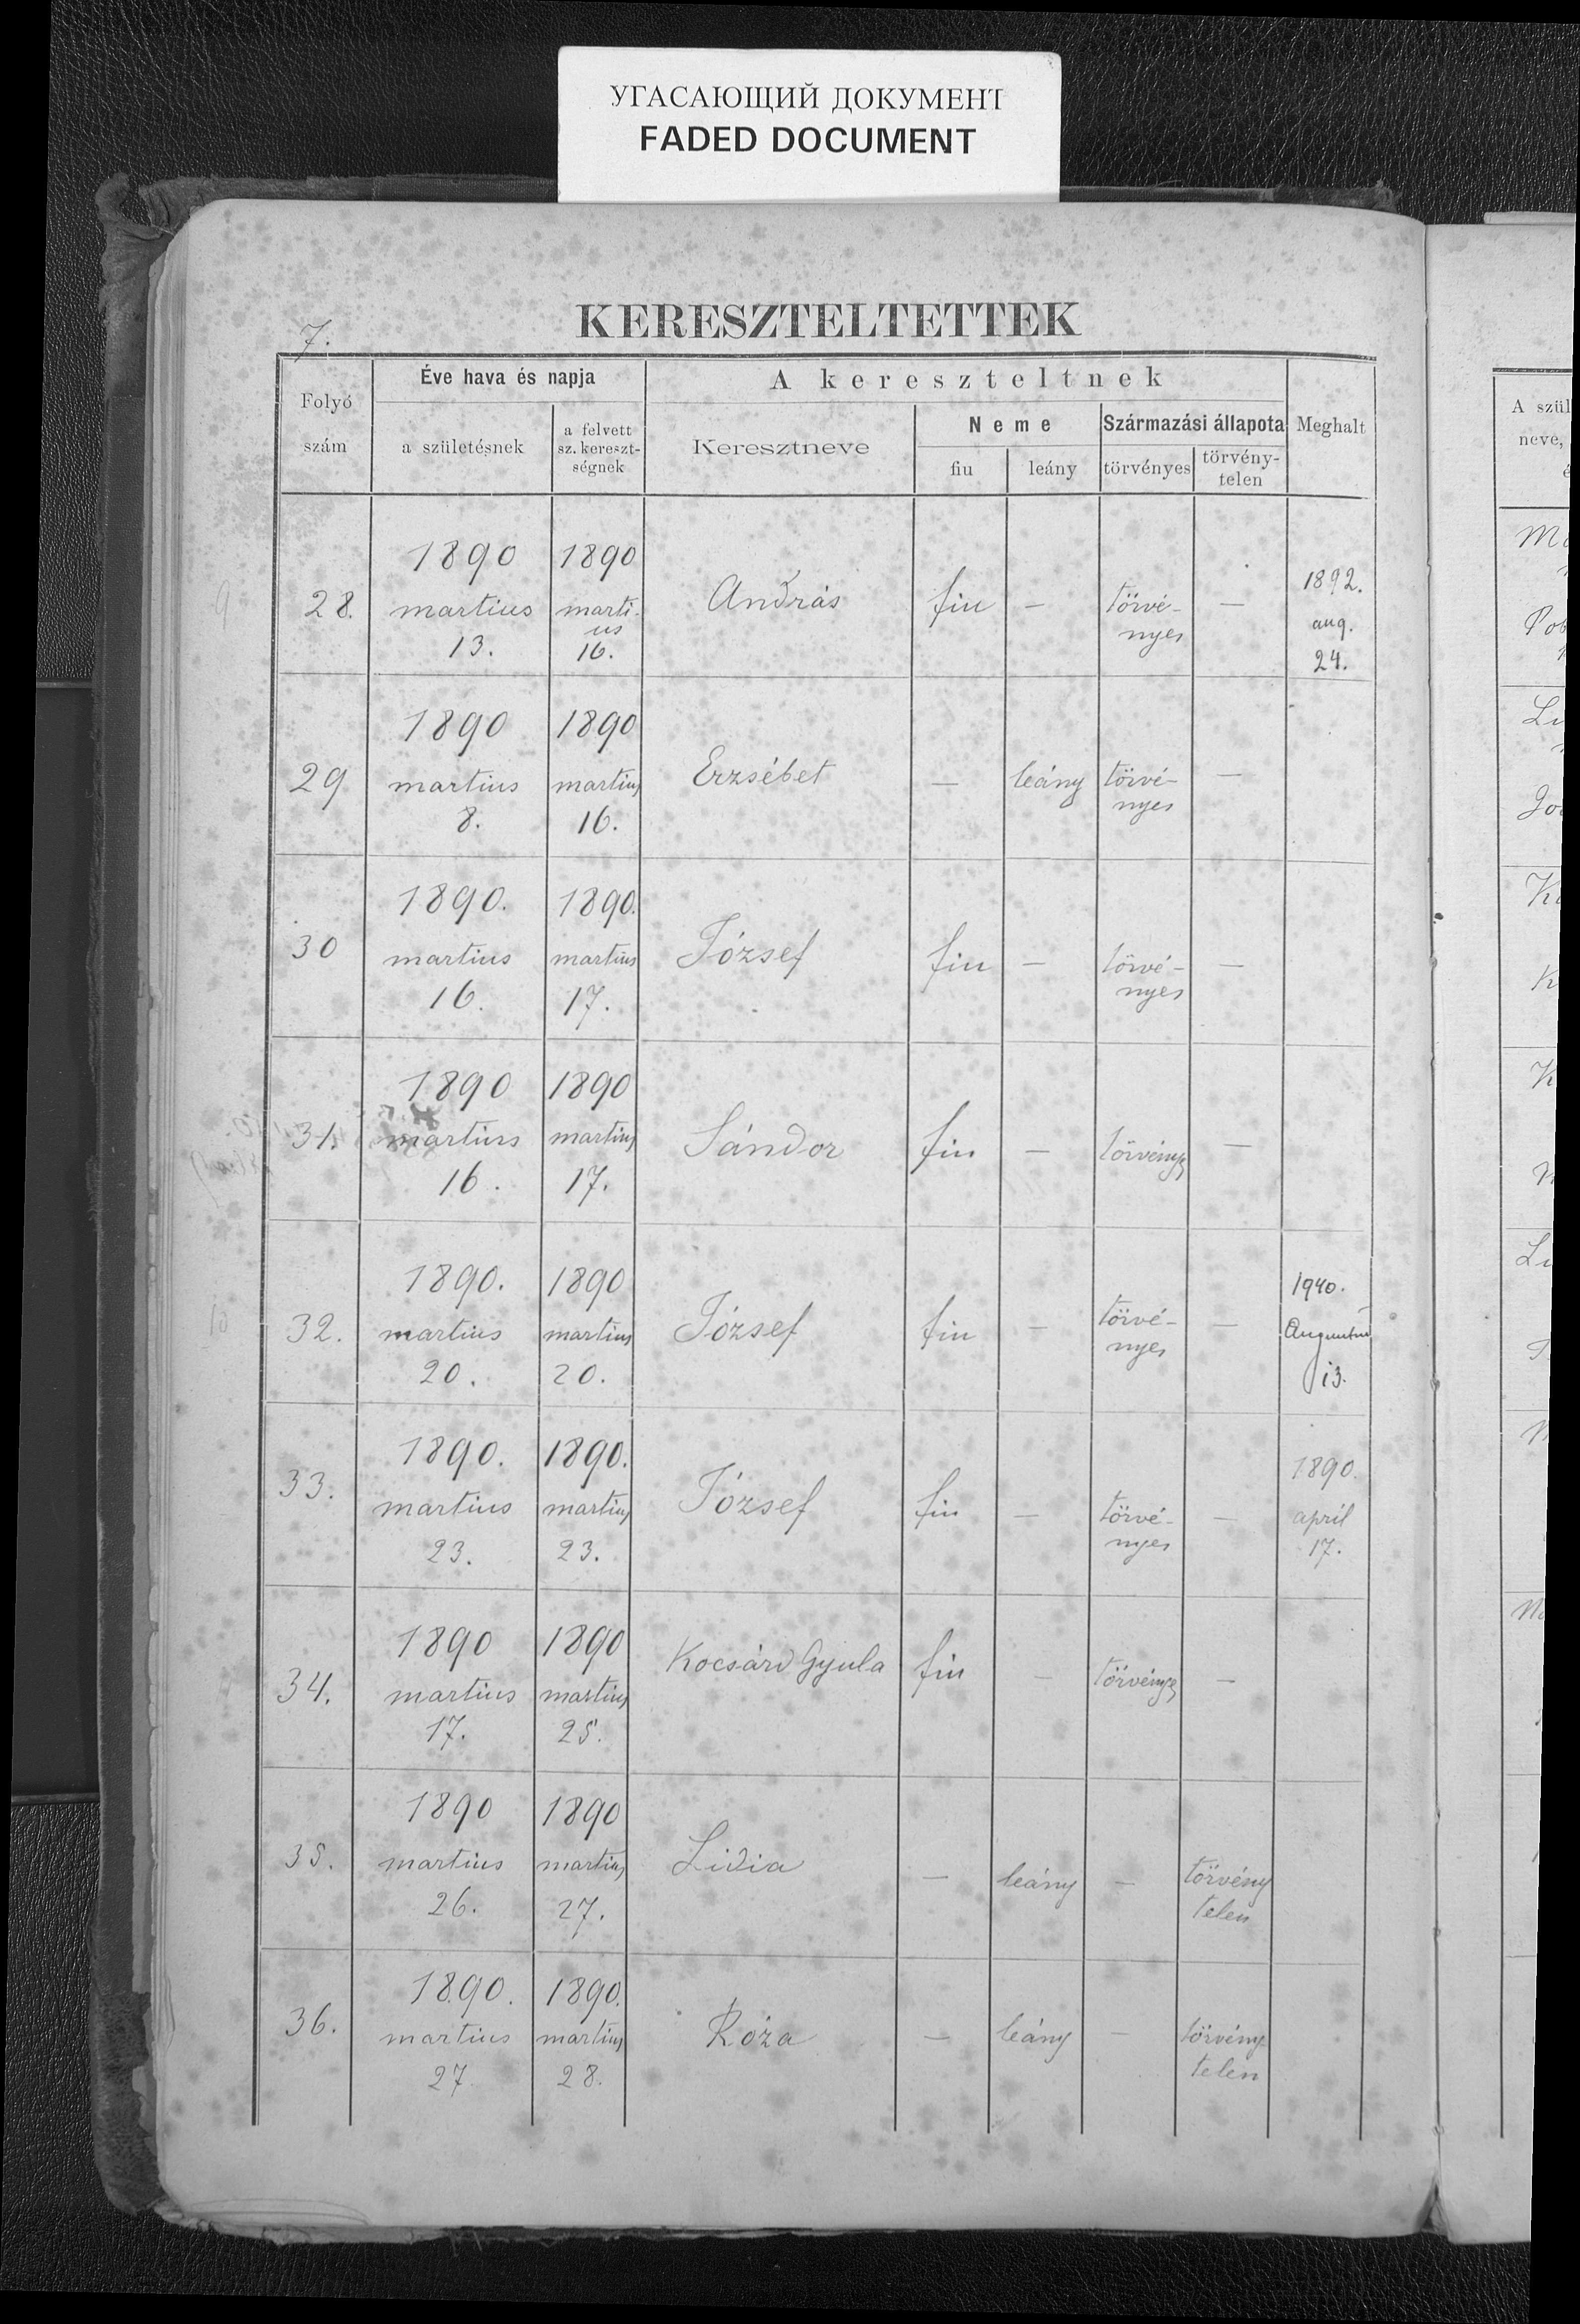 УГАСАЮЩИЙ ДОКУМЕНТ
FADED DOCUMENT
7.
KERESZTELTETTEK
Folyó szám
Éve hava és napja
a születésnek
a felvett sz. kereszt-ségnek
A kereszteltnek
Keresztneve
Neme
fiu
leány
Származási állapota
törvényes
törvény-telen
Meghalt
A szül
neve,
28. 1890 martius 13. 1890 marti-us 16. András fiu — törvé-nyes — 1892. aug. 24.
29 1890 martius 8. 1890 martius 16. Erzsébet — leány törvé-nyes —
30 1890. martius 16. 1890. martius 17. József fiu — törvé-nyes —
31. 1890 martius 16. 1890 martius 17. Sándor fiu — törvényes —
32. 1890. martius 20. 1890 martius 20. József fiu — törvé-nyes — 1940. Augusztus 13.
33. 1890. martius 23. 1890. martius 23. József fiu — törvé-nyes — 1890. april 17.
34. 1890 martius 17. 1890 martius 25. Kocsárd Gyula fiu — törvényes —
35. 1890 martius 26. 1890 martius 27. Lidia — leány — törvény telen
36. 1890. martius 27. 1890. martius 28. Róza — leány — törvény-telen